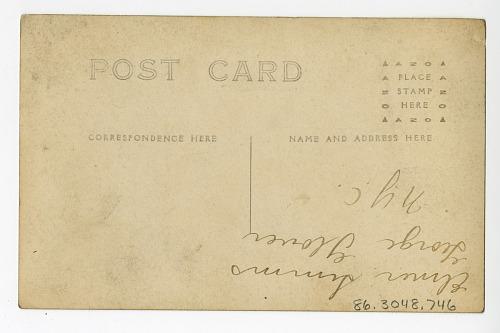 POST CARD
▲ A Z O ▲
PLACE
STAMP
HERE
▲ A Z O ▲
CORRESPONDENCE HERE
NAME AND ADDRESS HERE
Elmer Simms
George Glover
N.Y.C.
86.3048.746